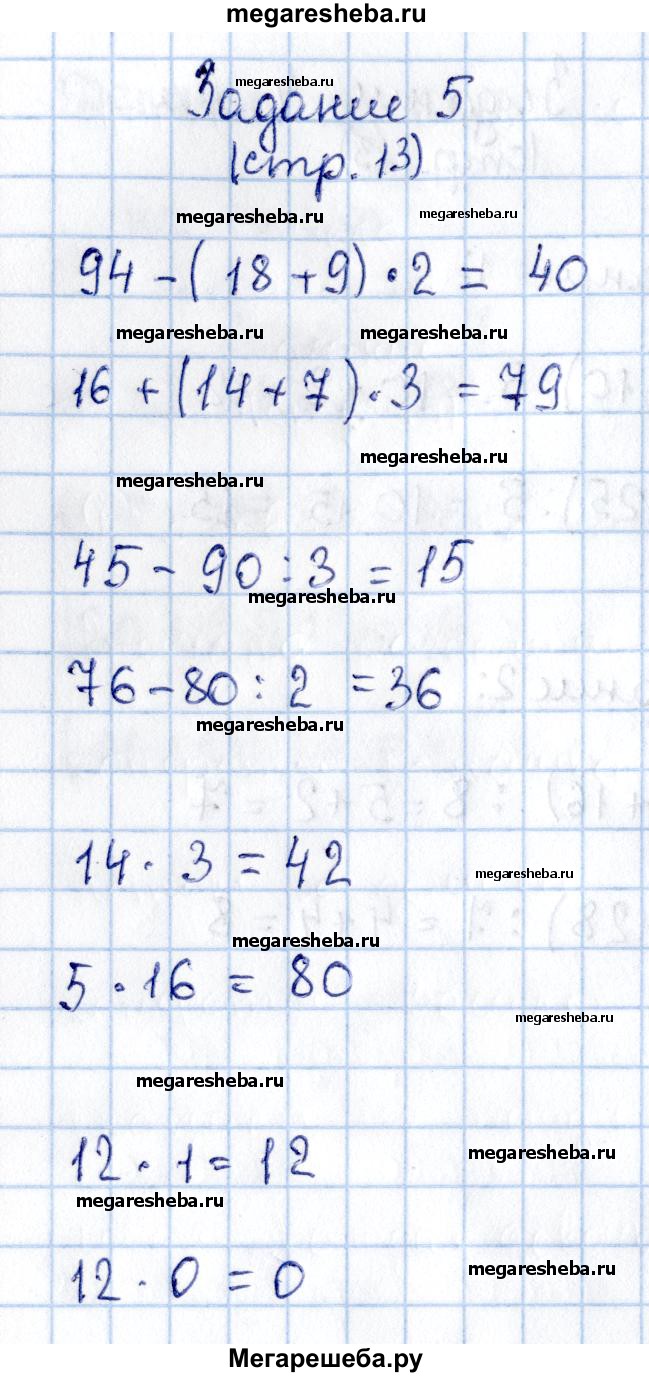 megaresheba.ru
megaresheba.ru
Задание 5
(стр. 13)
megaresheba.ru megaresheba.ru
94 - (18 + 9) · 2 = 40
megaresheba.ru megaresheba.ru
16 + (14 + 7) · 3 = 79
megaresheba.ru
megaresheba.ru
45 - 90 : 3 = 15
megaresheba.ru
76 - 80 : 2 = 36
megaresheba.ru
14 · 3 = 42
megaresheba.ru
megaresheba.ru
5 · 16 = 80
megaresheba.ru
megaresheba.ru
12 · 1 = 12
megaresheba.ru
megaresheba.ru
12 · 0 = 0
megaresheba.ru
Мегарешеба.ру